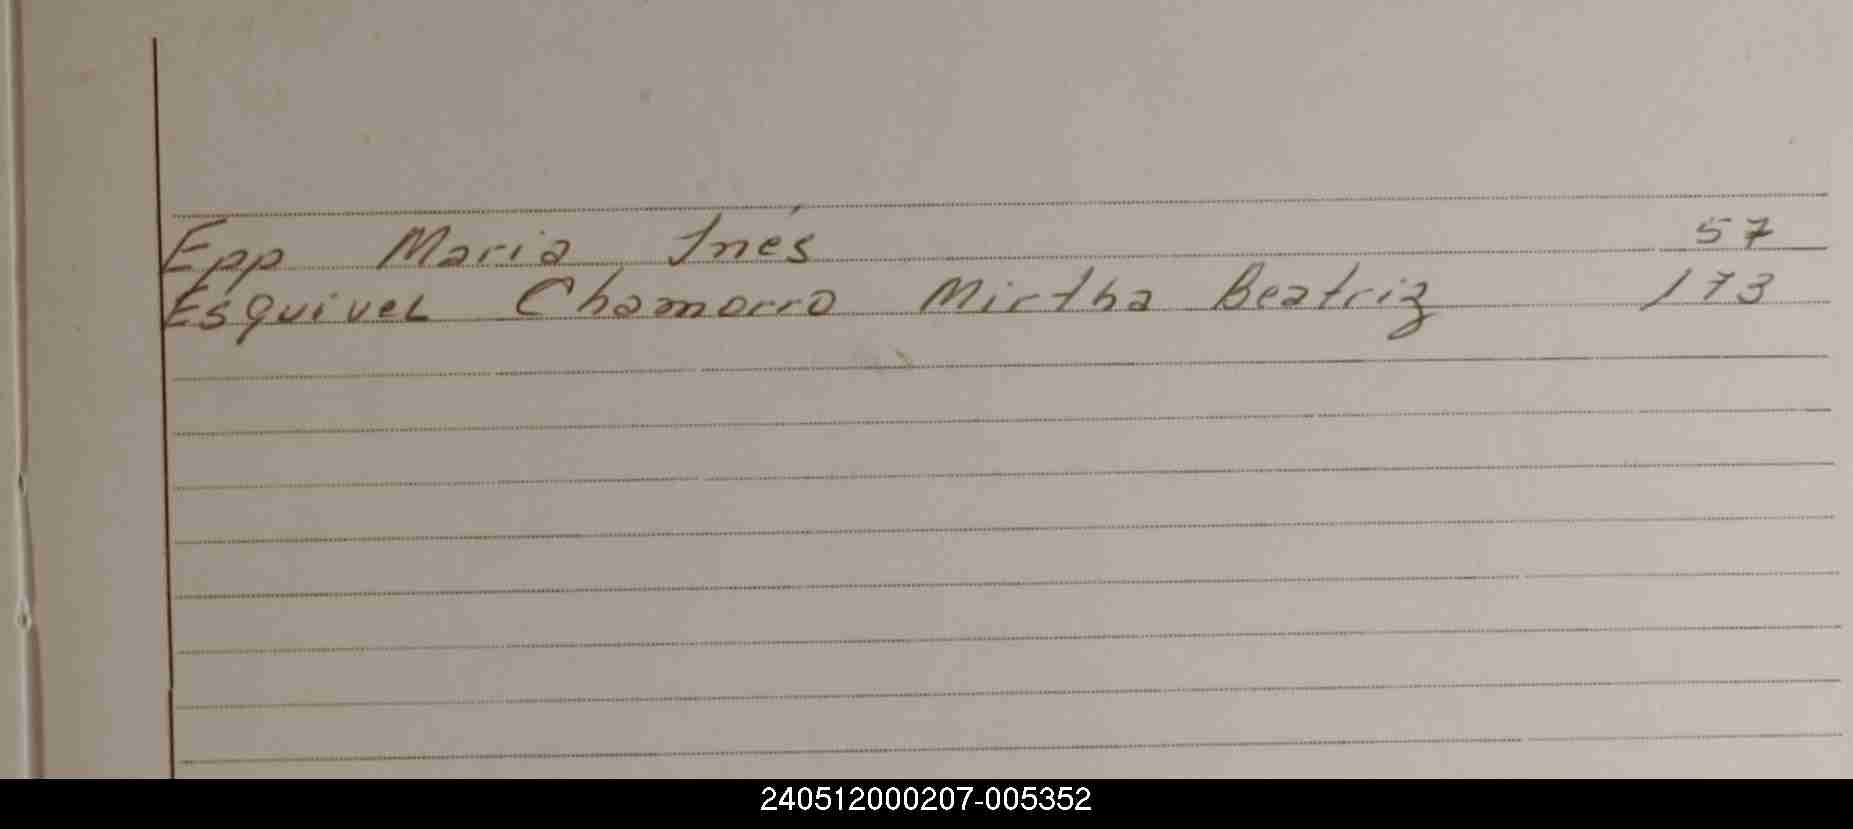 Epp Maria Inés 57
Esquivel Chamorro Mirtha Beatriz 173
240512000207-005352